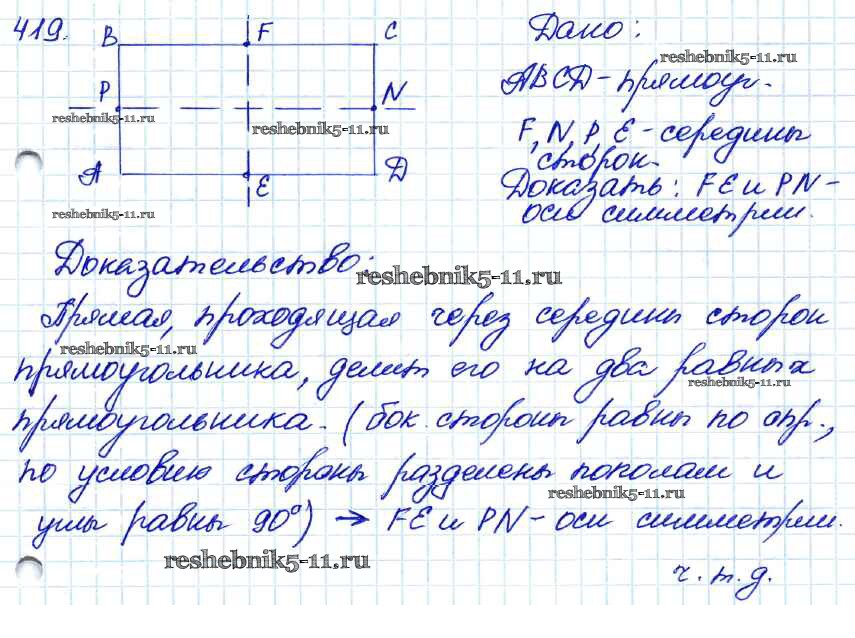 419.
B F C
P N
A E D
Дано:
ABCD - прямоуг.
F, N, P, E - середины
сторон.
Доказать: FE и PN -
оси симметрии.
Доказательство:
Прямая, проходящая через середины сторон
прямоугольника, делит его на два равных
прямоугольника. (бок. стороны равны по опр.,
по условию стороны разделены пополам и
углы равны 90°) → FE и PN - оси симметрии.
ч. т. д.
reshebnik5-11.ru
reshebnik5-11.ru
reshebnik5-11.ru
reshebnik5-11.ru
reshebnik5-11.ru
reshebnik5-11.ru
reshebnik5-11.ru
reshebnik5-11.ru
reshebnik5-11.ru